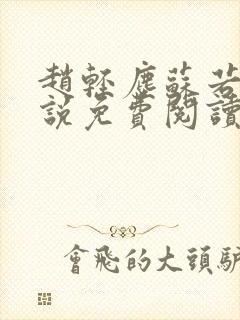 趙輕塵蘇若
說免費閱讀
會飛的大頭驢